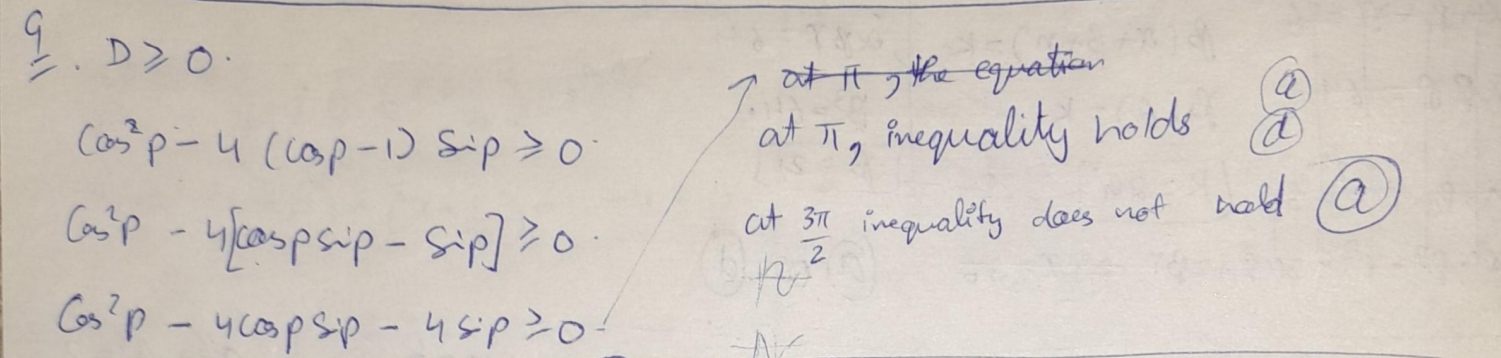 9. D ≥ 0.
Cos²p - 4 (cosp - 1) Sip ≥ 0.
Cos²p - 4[cospsip - Sip] ≥ 0.
Cos²p - 4cospSip - 4sip ≥ 0.
at π, the equation
at π, inequality holds a d
at 3π/2 inequality does not hold a